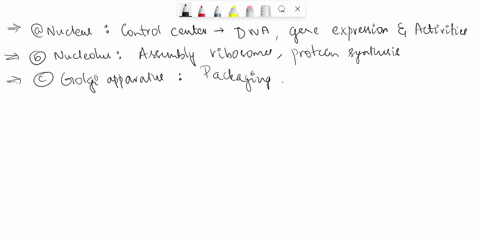 ⇒ ⓐ Nucleus : Control center → DNA, gene expression & Activities
⇒ ⓑ Nucleolus : Assembly ribosomes, protein synthesis
⇒ ⓒ Golgi apparatus : Packaging.